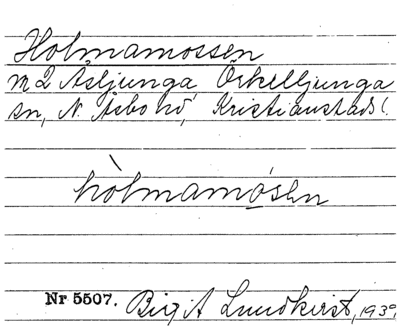 Holmamossen
m 2 Åsljunga, Örkelljunga
sn, N. Åsbo hd, Kristianstads l.
hòlmamósen
Nr 5507. Birgit Lundkvist, 1939,